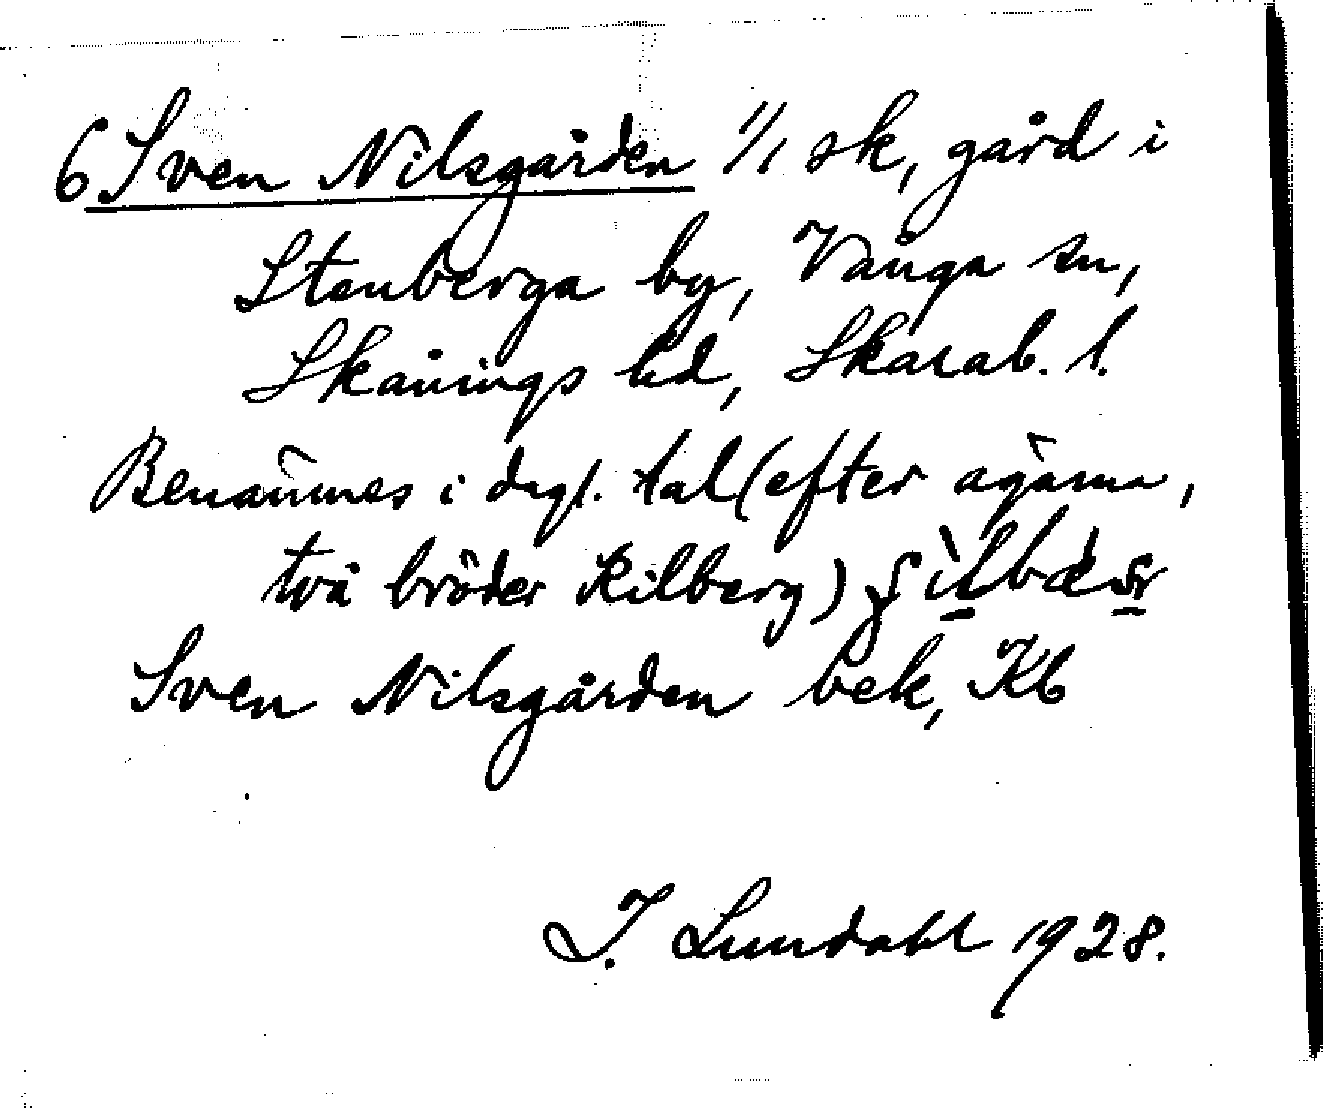 6 Sven Nilsgården 1/1 sk, gård i
Stenberga by, Vånga sn,
Skånings hd, Skarab. l.
Benämnes i dagl. tal (efter ägarna,
två bröder Kilberg)
Sven Nilsgården bek, Kb
I. Lundahl 1928.